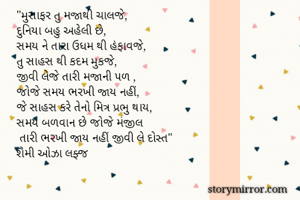 "મુસાફર તુ મજાથી ચાલજે,
દુનિયા બહુ અહેલી છે,
સમય ને તારા ઉધમ થી હંફાવજે,
તુ સાહસ થી કદમ મુકજે,
જીવી લેજે તારી મજાની પળ ,
જોજે સમય ભરખી જાય નહીં,
જે સાહસ કરે તેનો મિત્ર પ્રભુ થાય,
સમય બળવાન છે જોજે મંજીલ
તારી ભરખી જાય નહીં જીવી લે દોસ્ત"
શૈમી ઓઝા લફ્જ
storymirror.com